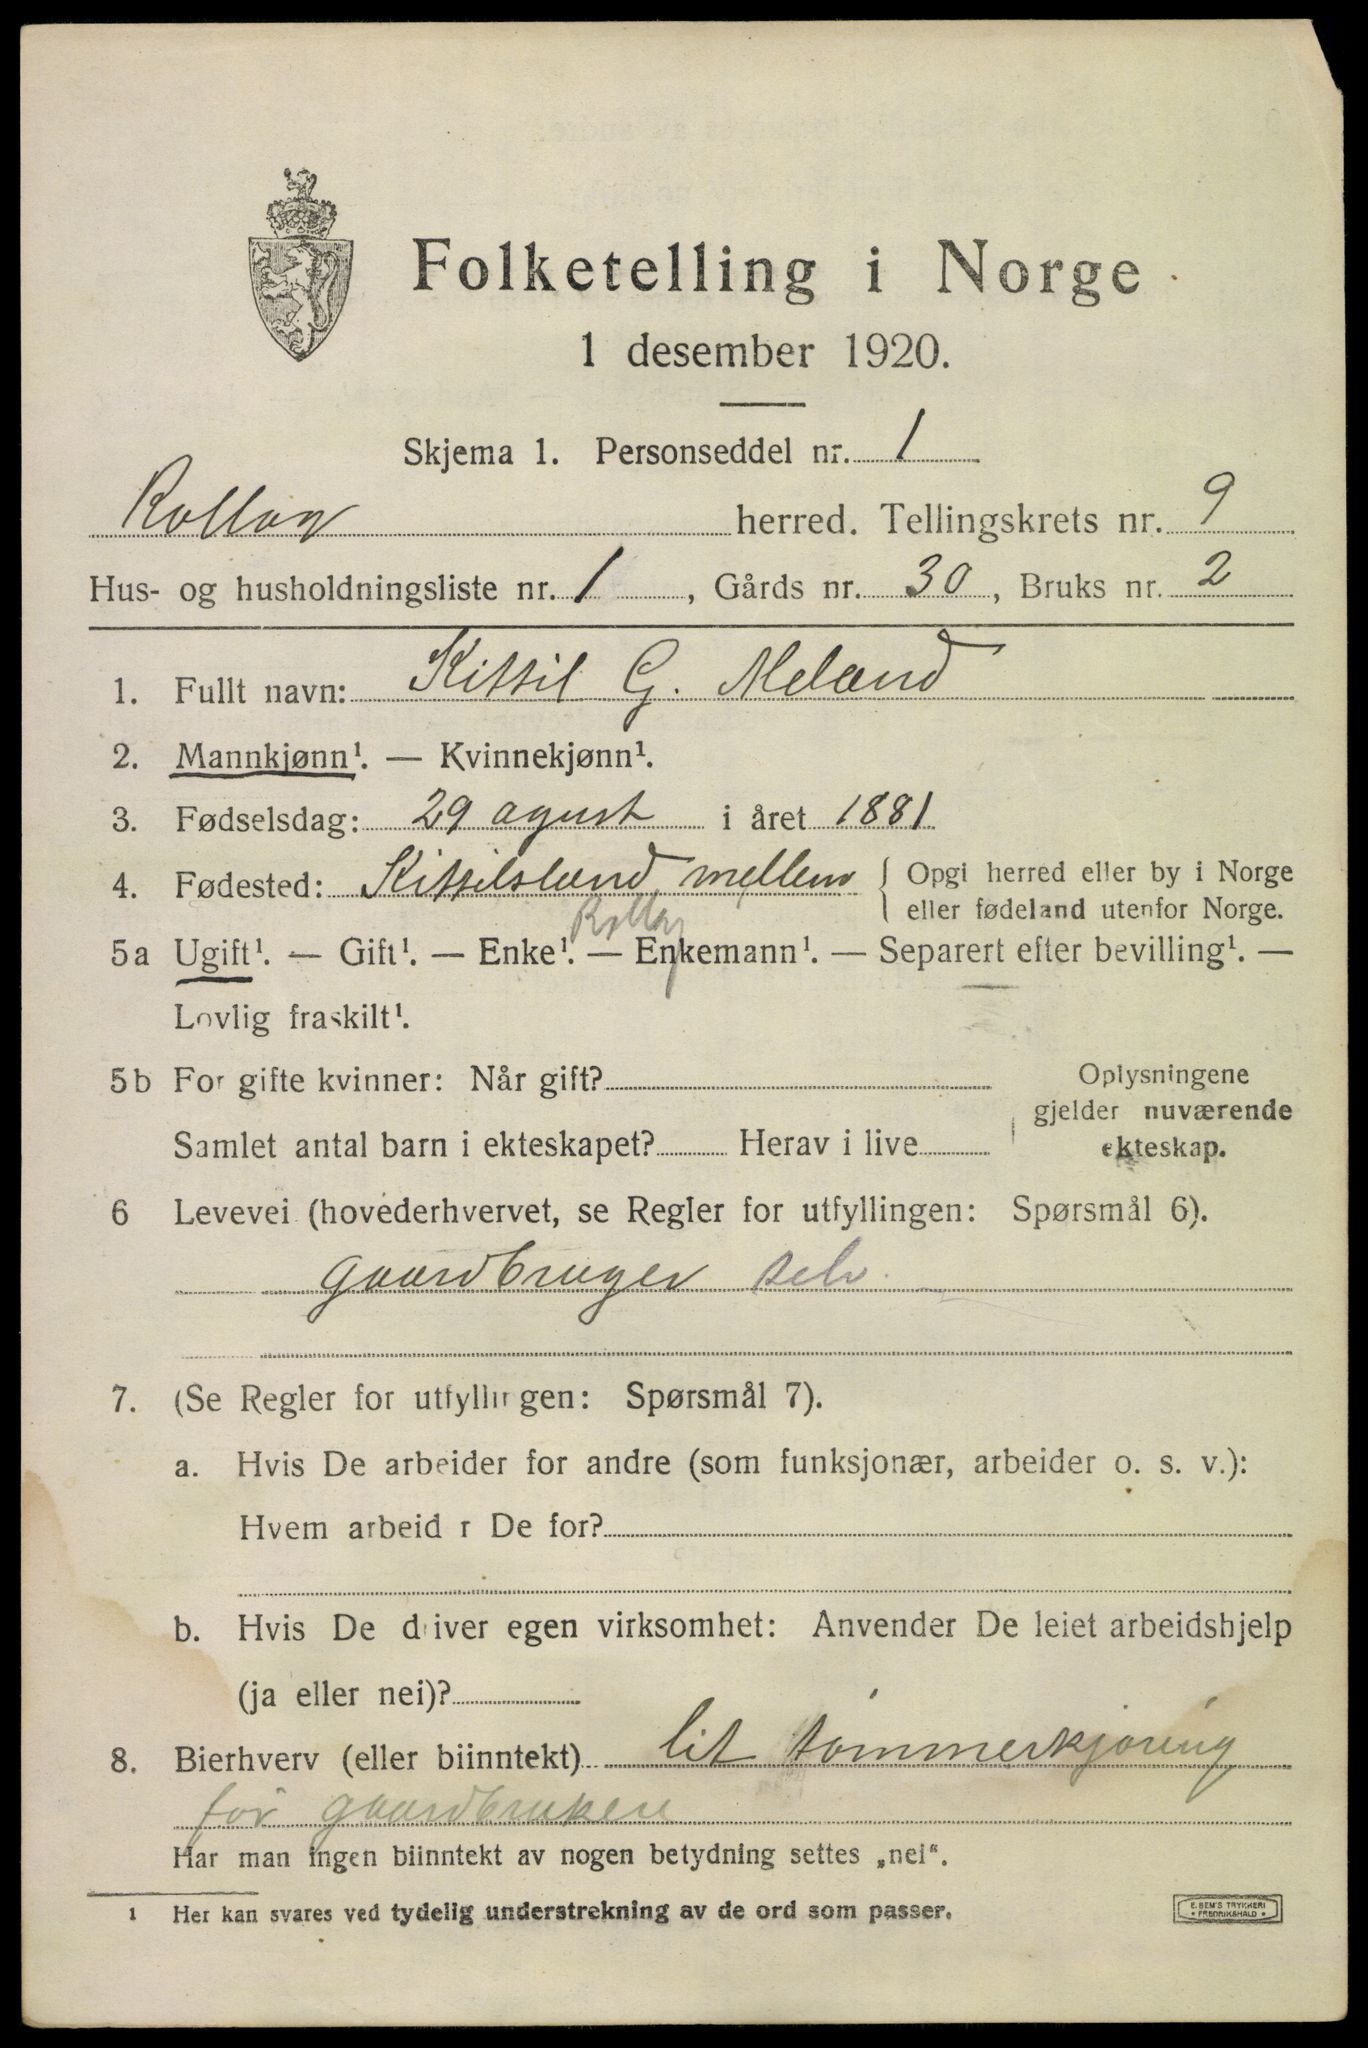 Folketelling i Norge
1 desember 1920.
Skjema 1. Personseddel nr. 1
Rollag herred. Tellingskrets nr. 9
Hus- og husholdningsliste nr. 1, Gårds nr. 30, Bruks nr. 2
1. Fullt navn: Kittil G. Meland
2. Mannkjønn¹. — Kvinnekjønn¹.
3. Fødselsdag: 29 agust i året 1881
4. Fødested: Kittilsland mellem { Opgi herred eller by i Norge
eller fødeland utenfor Norge.
Rollag
5a Ugift¹. — Gift¹. — Enke¹. — Enkemann¹. — Separert efter bevilling¹. —
Lovlig fraskilt¹.
5b For gifte kvinner: Når gift? Oplysningene
gjelder nuværende
Samlet antal barn i ekteskapet? Herav i live ekteskap.
6 Levevei (hovederhvervet, se Regler for utfyllingen: Spørsmål 6).
gaardbruger selv.
7. (Se Regler for utfyllingen: Spørsmål 7).
a. Hvis De arbeider for andre (som funksjonær, arbeider o. s. v.):
Hvem arbeid r De for?
b. Hvis De driver egen virksomhet: Anvender De leiet arbeidshjelp
(ja eller nei)?
8. Bierhverv (eller biinntekt) lit tømmerkjøring
før gaardbrukere
Har man ingen biinntekt av nogen betydning settes „nei“.
1 Her kan svares ved tydelig understrekning av de ord som passer.
E. SEM'S TRYKKERI
• FREDRIKSHALD •